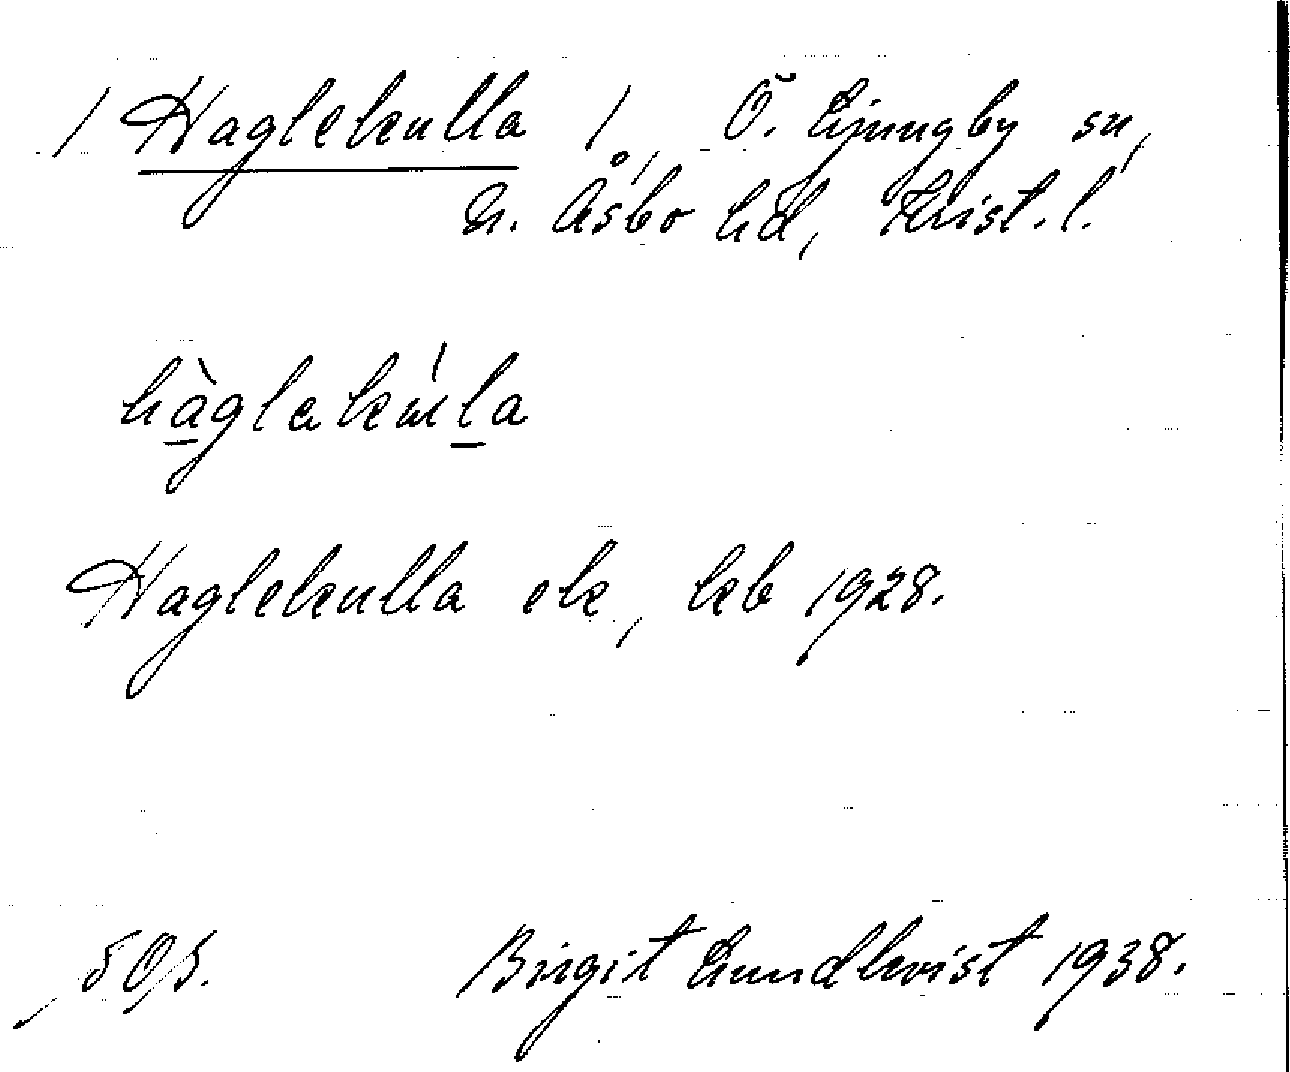 / Haglekulla /, Ö. Ljungby sn,
N. Åsbo hd, Krist. l.
hàglakúla
Haglekulla ek, kb 1928.
Birgit Lundkvist 1938.